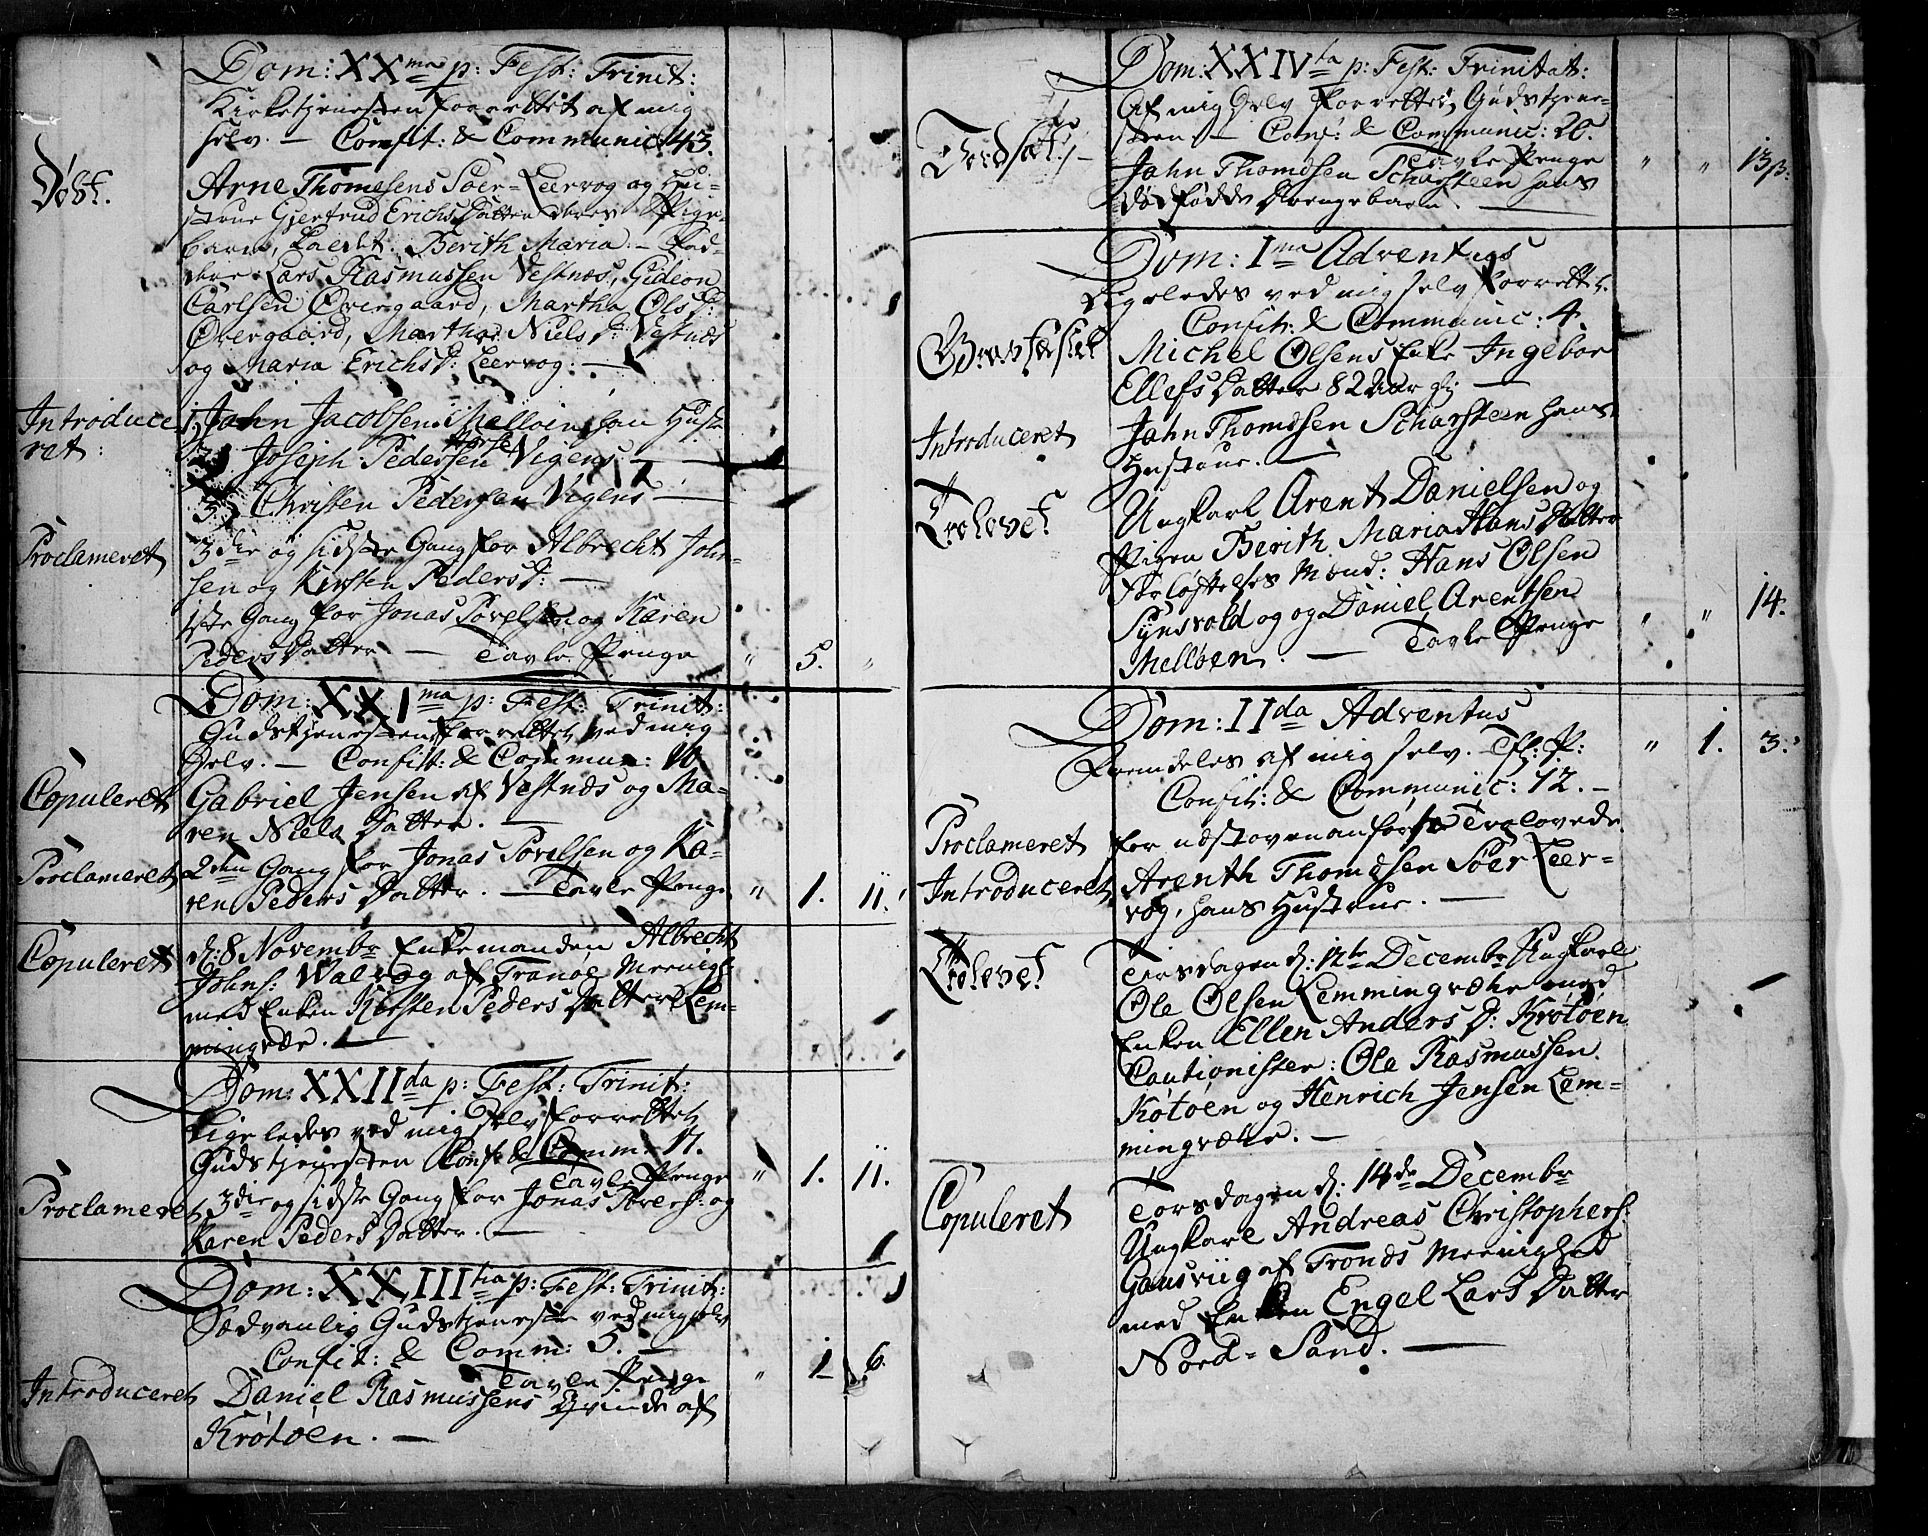 Dom: XXma p: Fest: Trinit:
Kirketjenesten forrettet af mig
selv. — Confit: & Communic: 43.
Døbt.
Arne Thomesens Søer-Leervog og Hu-
strue Gjertrud Erichs Datter deres Pige-
barn, kaldt: Berith Maria. — Fad-
dere: Lars Rasmussen Vestnæs, Gideon
Carlsen Overgaard, Martha Ols D:
Overgaard, Martha Niels D: Vestnæs
og Maria Erichs D: Leervog. —
Introduce-
ret:
1, John Jacobsen Melløen han Hust:
2, Joseph Pedersen Vigens —
3, Christen Pedersen Vigens —
Proclameret
3die og sidste Gang for Albrecht John-
sen og Kirsten Peders D: —
1ste Gang for Jonas Povelsen og Karen
Peders Datter — Tavle Penge " 5. "
Dom: XXIma p: Fest: Trinit:
Gudstjenesten forrettet ved mig
Selv. — Confit: & Commun: 10
Copuleret
Gabriel Jensen af Vestnæs og Ma-
ren Niels Datter. —
Proclameret
2den Gang for Jonas Povelsen og Ka-
ren Peders Datter. — Tavle Penge " 1. 11.
Copuleret
d: 8 Novembr Enkemanden Albrecht
Johns: Walvog af Tranøe Meenigh:
med Enken Kirsten Peders Datter Lem-
mingvær. —
Dom: XXIIda p: Fest: Trinit:
Ligeledes ved mig Selv forrettet
Gudstjenesten Conf: & Comm: 17.
Tavle Penge " 1. 11.
Proclameret
3die og sidste Gang for Jonas Povels: og
Karen Peders Datter. —
Dom: XXIIItia p: Fest: Trinit:
Sædvanlig Gudstjeneste ved mig selv
Confit: & Comm: 5. —
Tavle Penge " 1 6.
Introduceret
Daniel Rasmussens Qvinde af
Krøtøen. —
Dom: XXIVta p: Fest: Trinitat:
Af mig Selv forrettet Gudstjene-
sten. — Conf: & Communic: 26.
Tavle Penge " " 13 β.
Jordsat.
John Thomdsen Scharsteen hans
dødfødde Drengebarn. —
Dom: Ima Adventus
Ligeledes ved mig selv forrettet.
Confit: & Communic: 4.
Michel Olsens Enke Ingebor
Ellefs Datter 82 Aar gl: —
Introduceret
John Thomdsen Scharsteen hans
Hustrue. —
Trolovet
Ungkarl Arent Danielsen og
Pigen Berith Maria Hans Datter
Forløftelses Mænd: Hans Olsen
Synsvold og og Daniel Arentsen
Melløen. — Tavle Penge " " 14.
Dom: IIda Adventus
Fremdeles af mig selv. Tfl: P: " 1. 3.
Confit: & Communic: 12. —
Proclameret
for næstovenanførte Trolovede.
Introduceret
Arenth Thomdsen Søer Leer-
vog, hans Hustrue. —
Trolovet
Tirsdagen d: 12te Decembr Ungkarl
Ole Olsen Lemmingvær med
Enken Ellen Anders D: Krøtøen
Cautionister: Ole Rasmussen
Krøtøen og Henrich Jensen Lem-
mingvær. —
Copuleret
Torsdagen d: 14de Decembr
Ungkarl Andreas Christophers:
Gausviig af Tronds Meenighed
med Enken Engel Lars Datter
Nord-Sand. —